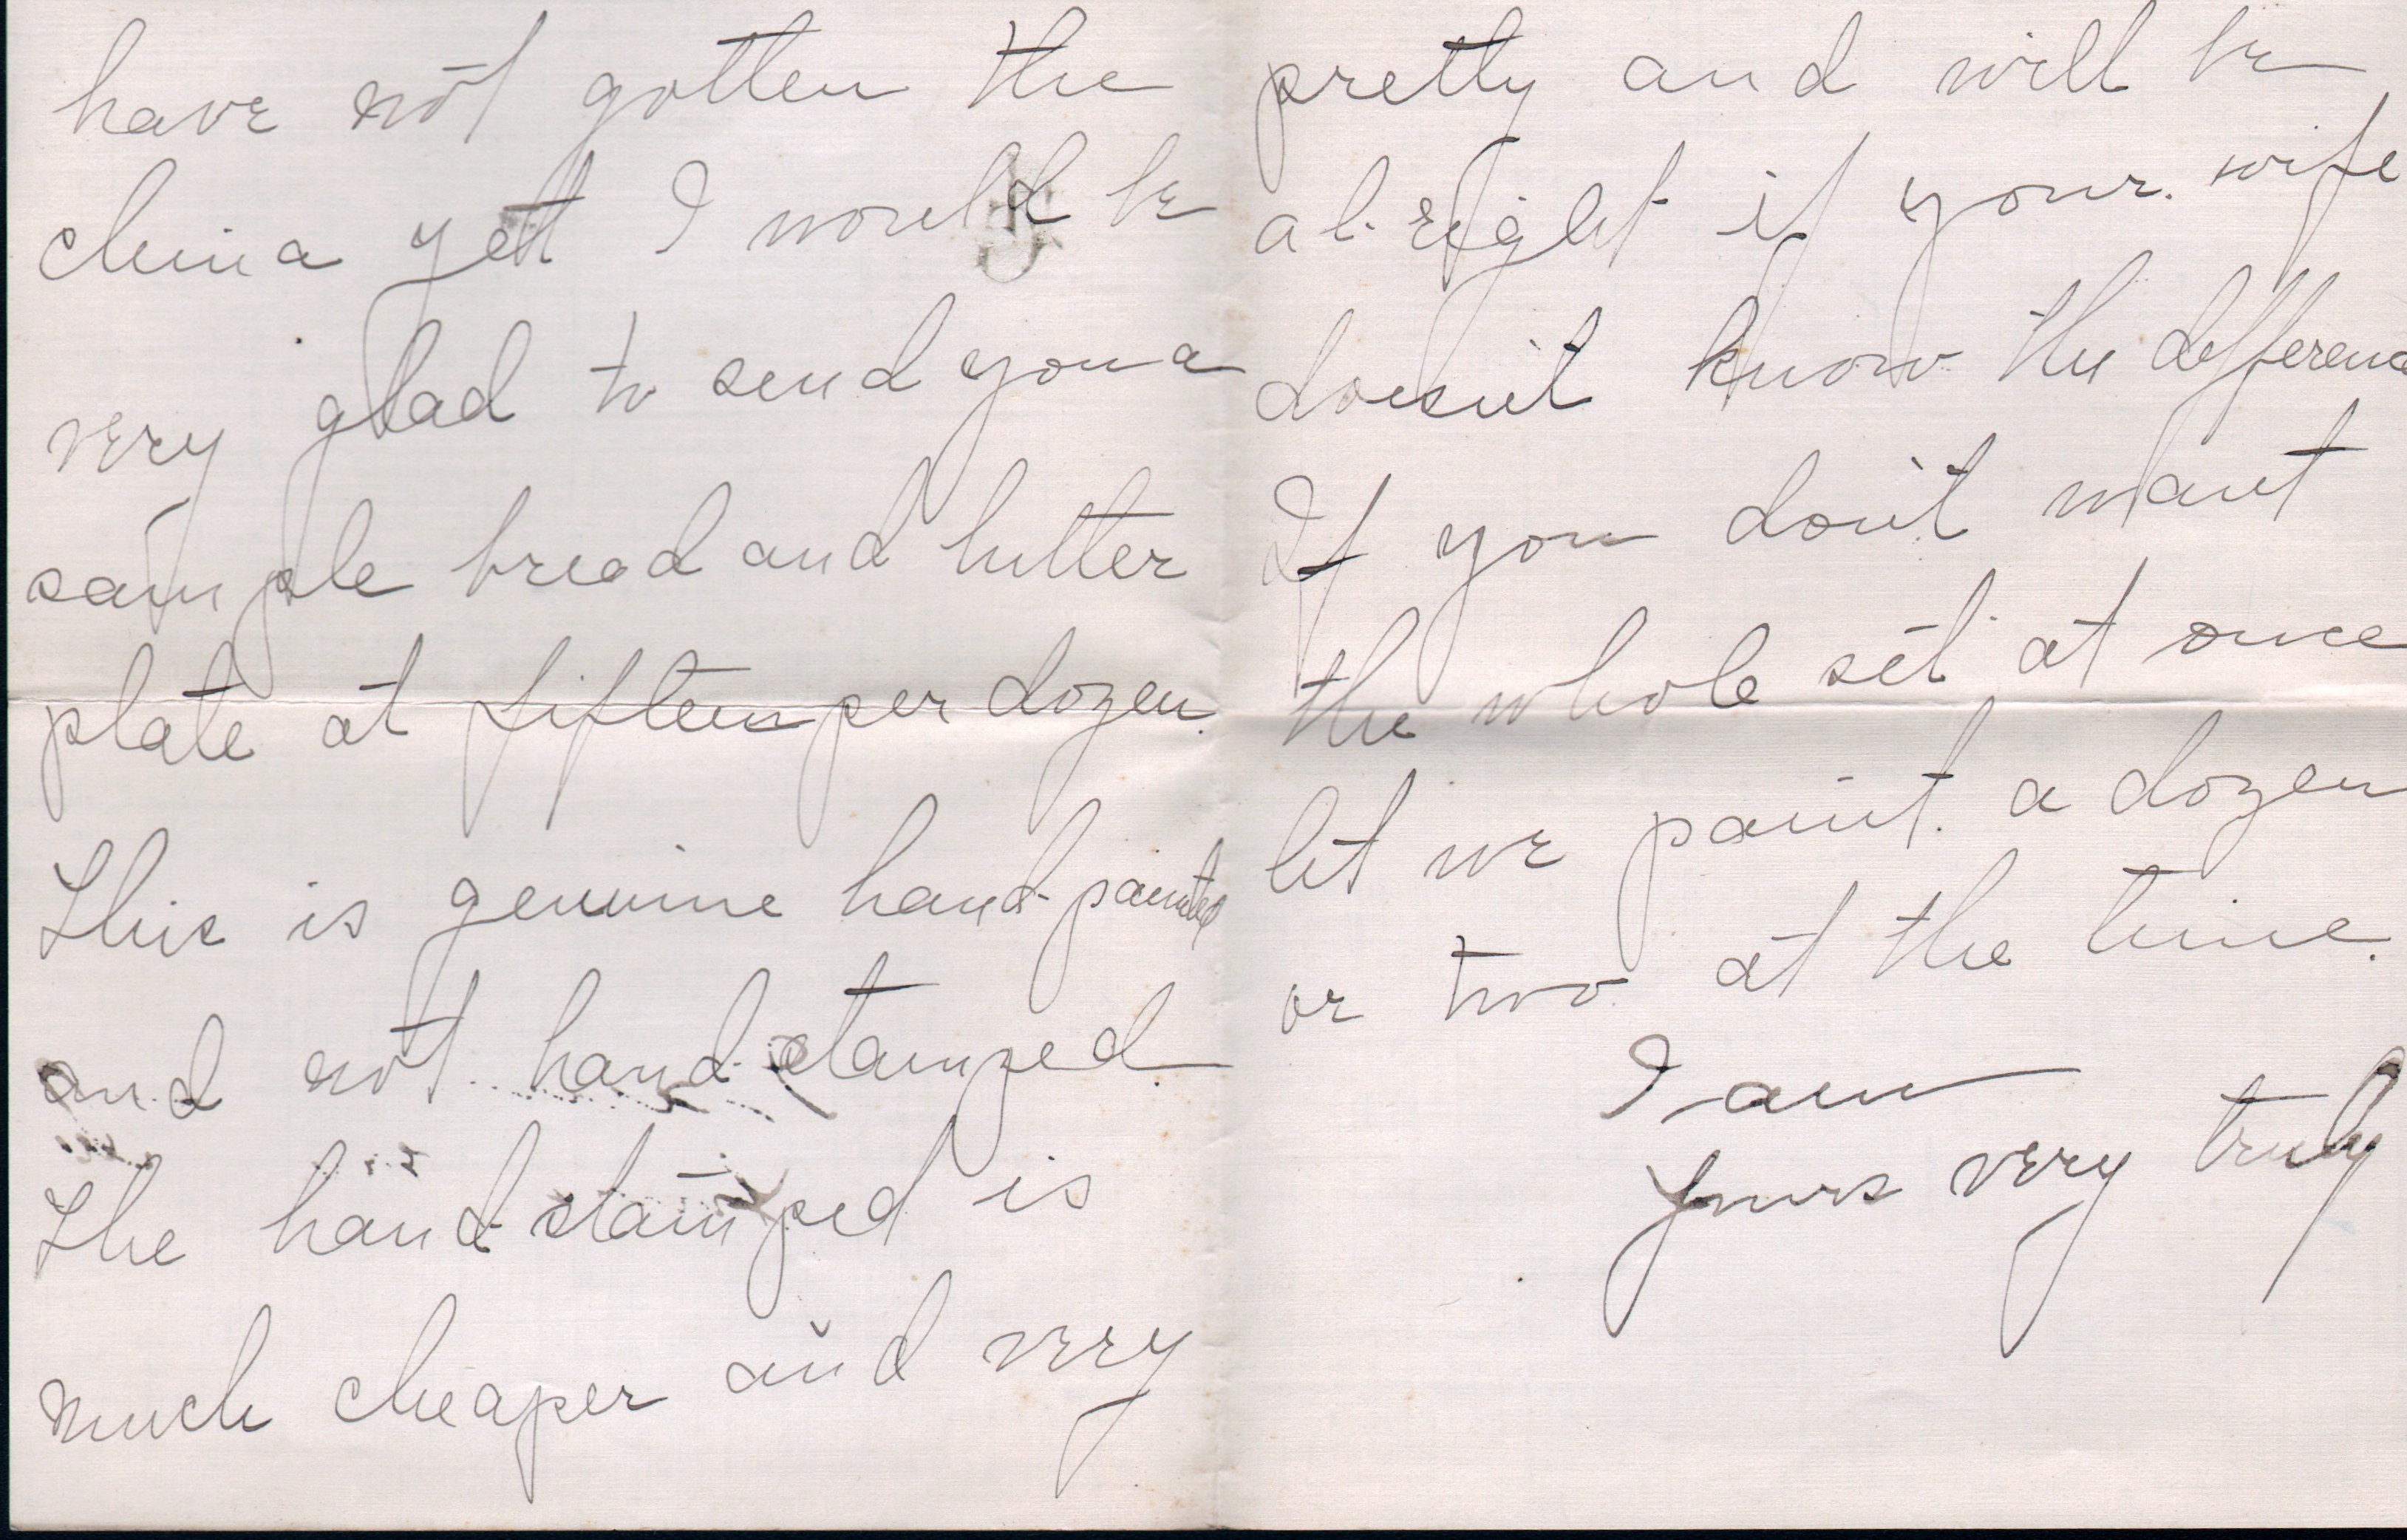 have not gotten the
china yet I would be
very glad to send you a
sample bread and butter
plate at fifteen per dozen.
This is genuine hand-painted
and not hand-stamped.
The hand-stamped is
much cheaper and very
pretty and will be
al-right if your wife
doesn't know the difference
If you don't want
the whole set at once
let me paint a dozen
or two at the time.
I am
Yours very truly